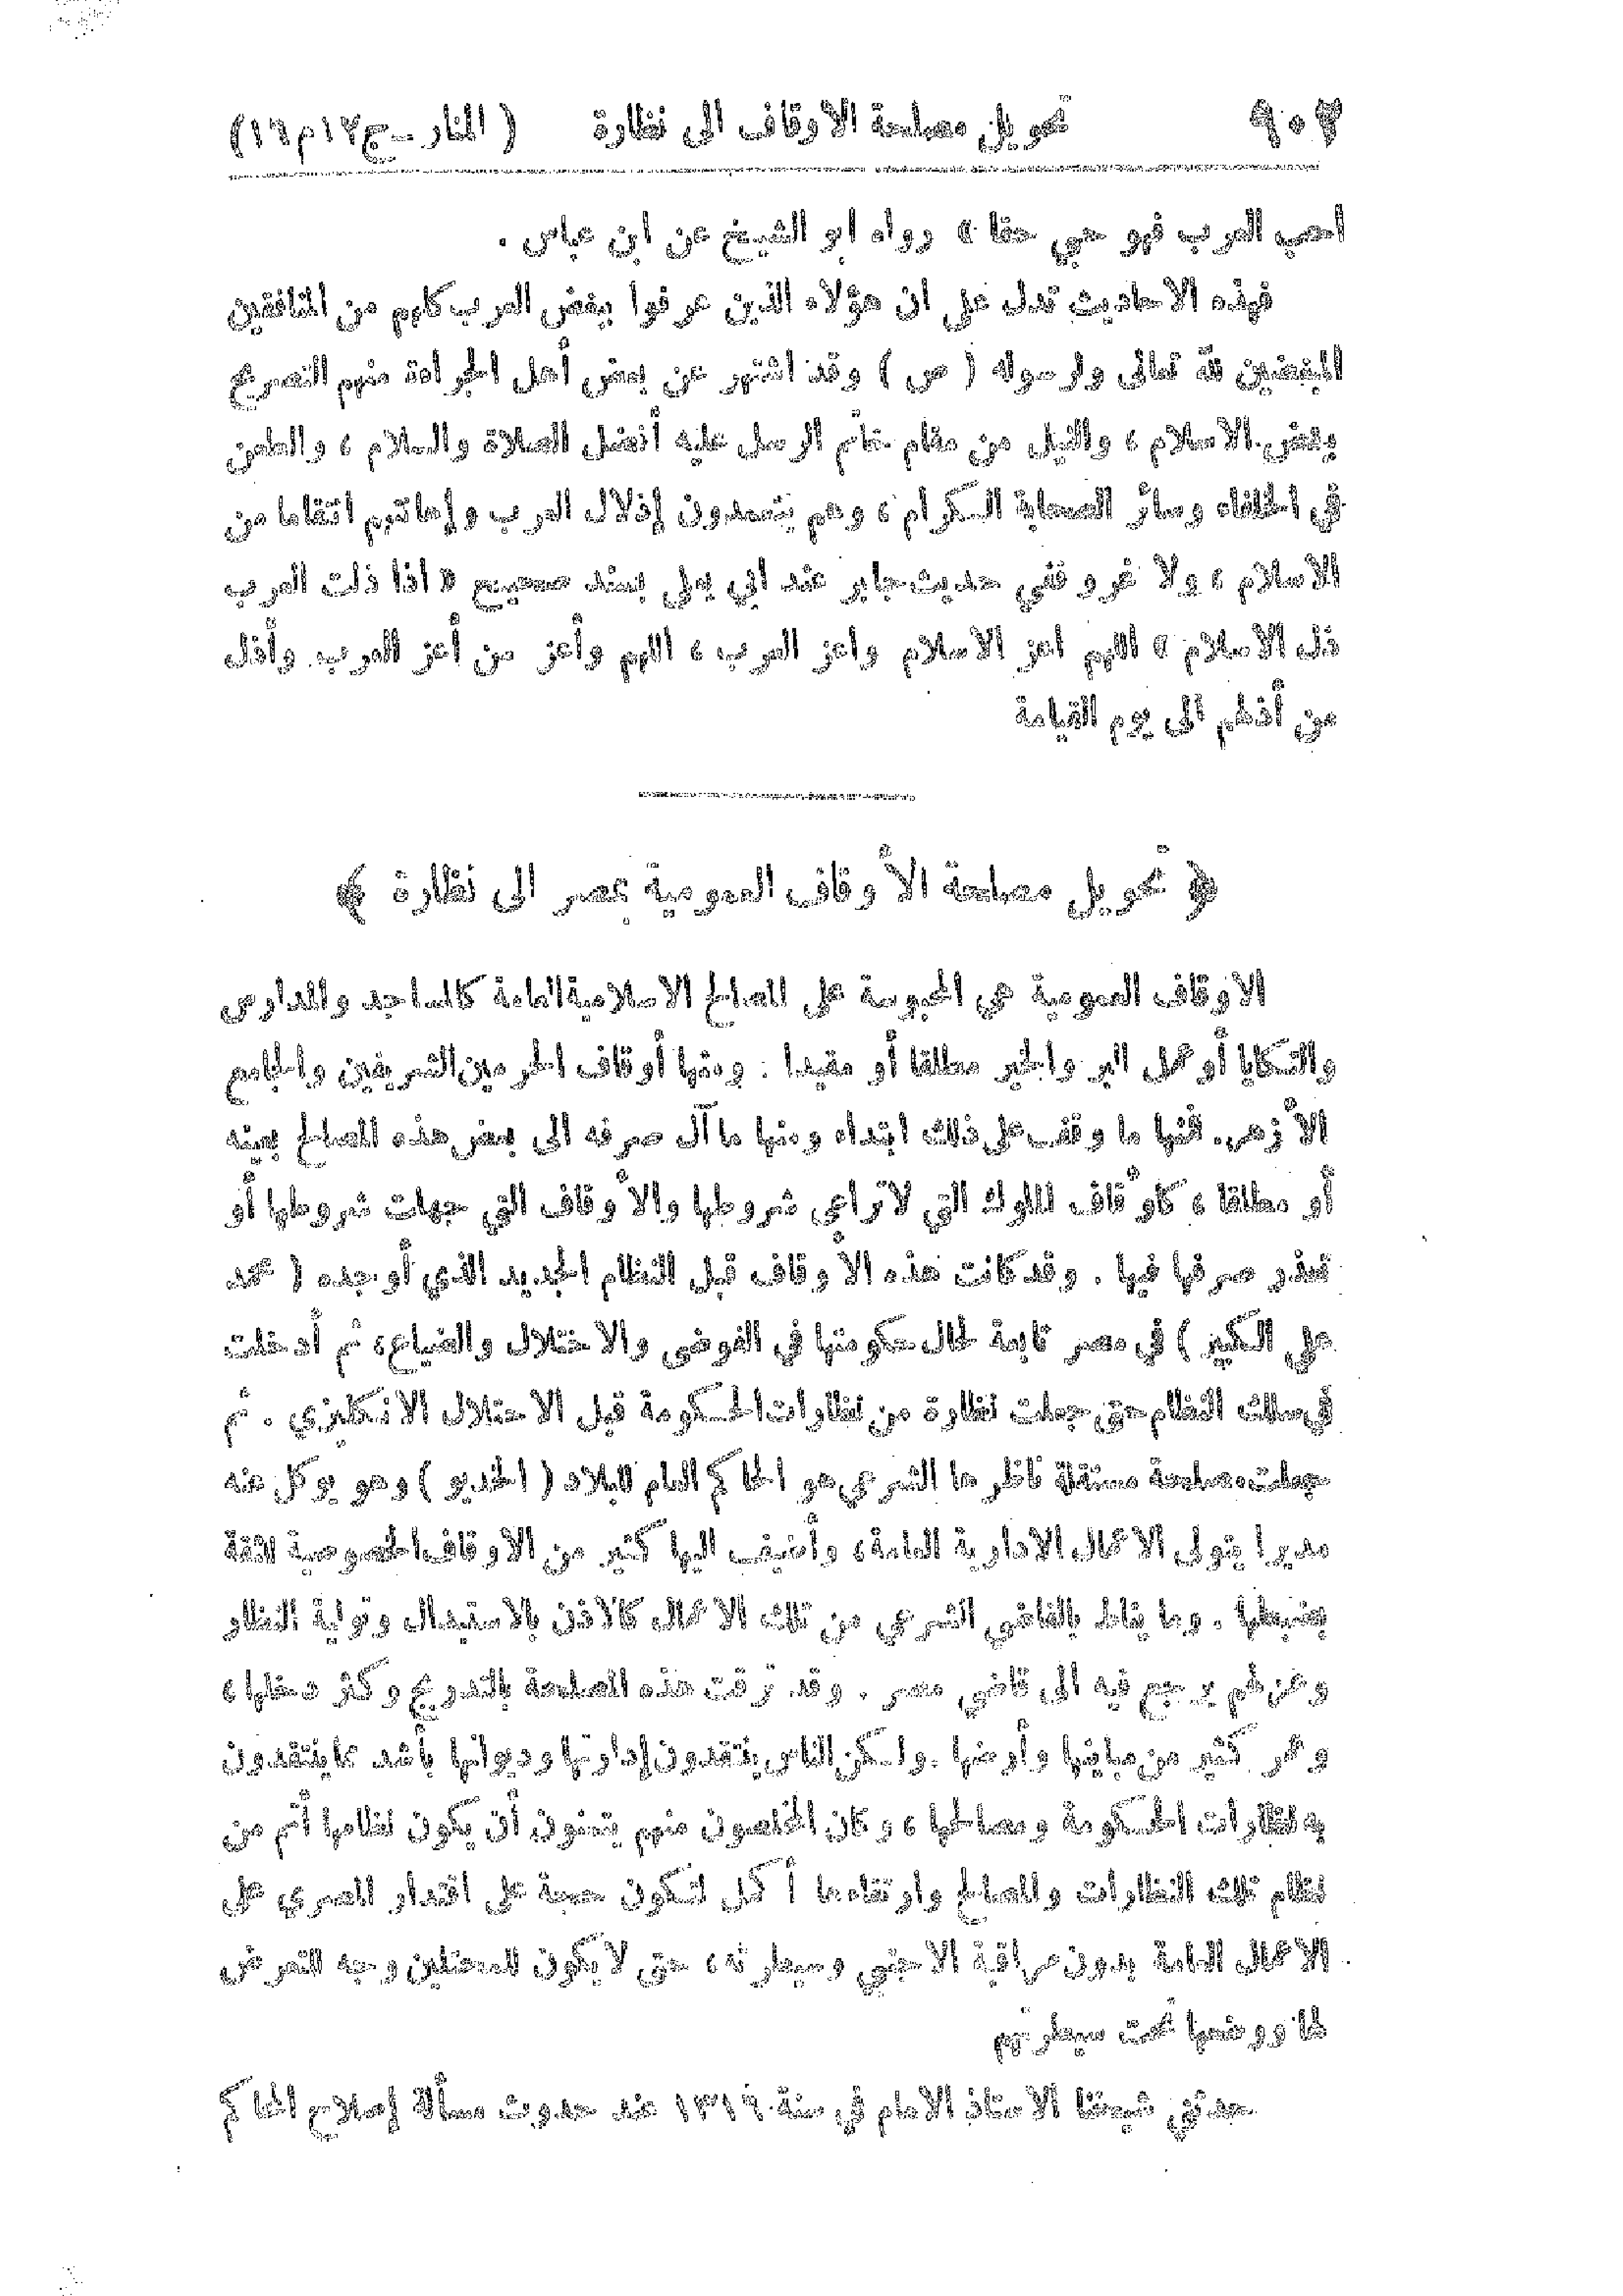 ٩٠٢ تحويل مصلحة الاوقاف الى نظارة ( المنار ــ ج١٢م١٦)
احب العرب فهو حبي حقا » رواه ابو الشيخ عن ابن عباس .
فهذه الاحاديث تدل على ان هؤلاء الذين عرفوا ببغض العرب كلهم من المنافقين
المبغضين لله تعالى ولرسوله ( ص ) وقد اشتهر عن بعض أهل الجراءة منهم التصريح
ببغض الاسلام ، والنيل من مقام خاتم الرسل عليه أفضل الصلاة والسلام ، والطعن
في الخلفاء وسائر الصحابة الكرام ، وهم يتعمدون إذلال العرب وإهانتهم انتقاما من
الاسلام ، ولا غرو ففي حديث جابر عند ابي يعلى بسند صحيح « اذا ذلت العرب
ذل الاسلام » اللهم اعز الاسلام واعز العرب ، اللهم وأعز من أعز العرب وأذل
من أذلهم الى يوم القيامة
﴿ تحويل مصلحة الأوقاف العمومية بمصر الى نظارة ﴾
الاوقاف العمومية هي المحبوسة على المصالح الاسلامية العامة كالمساجد والمدارس
والتكايا أو عمل البر والخير مطلقا أو مقيدا : ومنها أوقاف الحرمين الشريفين والجامع
الأزهر. فمنها ما وقف على ذلك ابتداء ومنها ما آل صرفه الى بعض هذه المصالح بعينه
أو مطلقا ، كأوقاف الملوك التي لا تراعى شروطها والأوقاف التي جهلت شروطها أو
تعذر صرفها فيها . وقد كانت هذه الأوقاف قبل النظام الجديد الذي أوجده ( محمد
علي الكبير ) في مصر تابعة لحال حكومتها في الفوضى والاختلال والضياع، ثم أدخلت
في سلك النظام حتى جعلت نظارة من نظارات الحكومة قبل الاحتلال الانكليزي . ثم
جعلت مصلحة مستقلة ناظرها الشرعي هو الحاكم العام للبلاد ( الخديو ) وهو يوكل عنه
مديرا يتولى الاعمال الادارية العامة، وأضيف اليها كثير من الاوقاف الخصوصية الثقة
بضبطها . وما يناط بالقاضي الشرعي من تلك الاعمال كالاذن بالاستبدال وتولية النظار
وعزلهم يرجع فيه الى قاضي مصر . وقد ترقت هذه المصلحة بالتدريج وكثر دخلها ،
وعمر كثير من مبانيها وأرضها . ولكن الناس ينتقدون إدارتها وديوانها بأشد مما ينتقدون
به نظارات الحكومة ومصالحها ، وكان المخلصون منهم يتمنون أن يكون نظامها أتم من
نظام تلك النظارات والمصالح وارتقاءها أكمل لتكون حجة على اقتدار المصري على
الاعمال العامة بدون مراقبة الاجنبي وسيطرته ، حتى لا يكون للمحتلين وجه للتعرض
لها ووضعها تحت سيطرتهم
حدثني شيخنا الاستاذ الامام في سنة ١٣١٦ عند حدوث مسألة إصلاح المحاكم